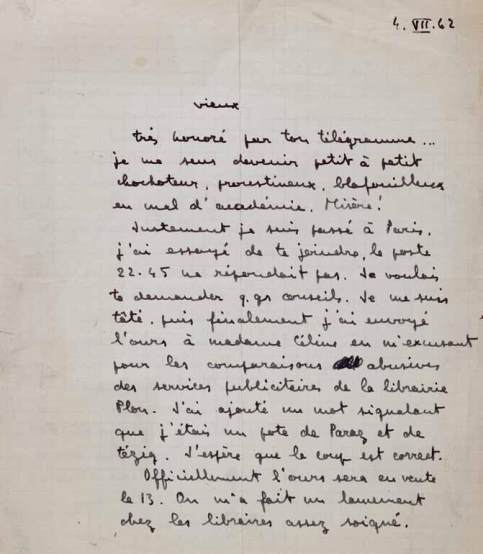 4. VII. 62
vieux
très honoré par ton télégramme...
je me sens devenir petit à petit
chochoteur, proustineux, blafouilleux
en mal d'académie. Misère!
Justement je suis passé à Paris,
j'ai essayé de te joindre, le poste
22.45 ne répondait pas. Je voulais
te demander q.qs conseils. Je me suis
tâté, puis finalement j'ai envoyé
l'ours à madame Céline en m'excusant
pour les comparaisons abusives
des services publicitaires de la librairie
Plon. J'ai ajouté un mot signalant
que j'étais un pote de Paraz et de
tézig. J'espère que le coup est correct.
Officiellement l'ours sera en vente
le 13. On m'a fait un lancement
chez les libraires assez soigné.